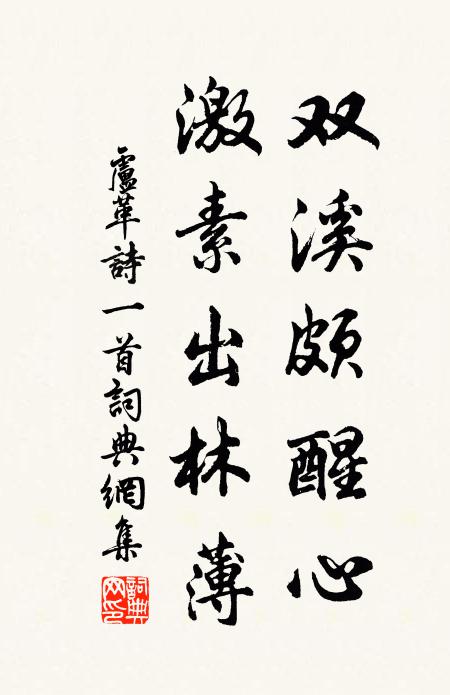 双溪颇醒心
激素出林薄
盧革詩一首詞典網集
詞典
网印